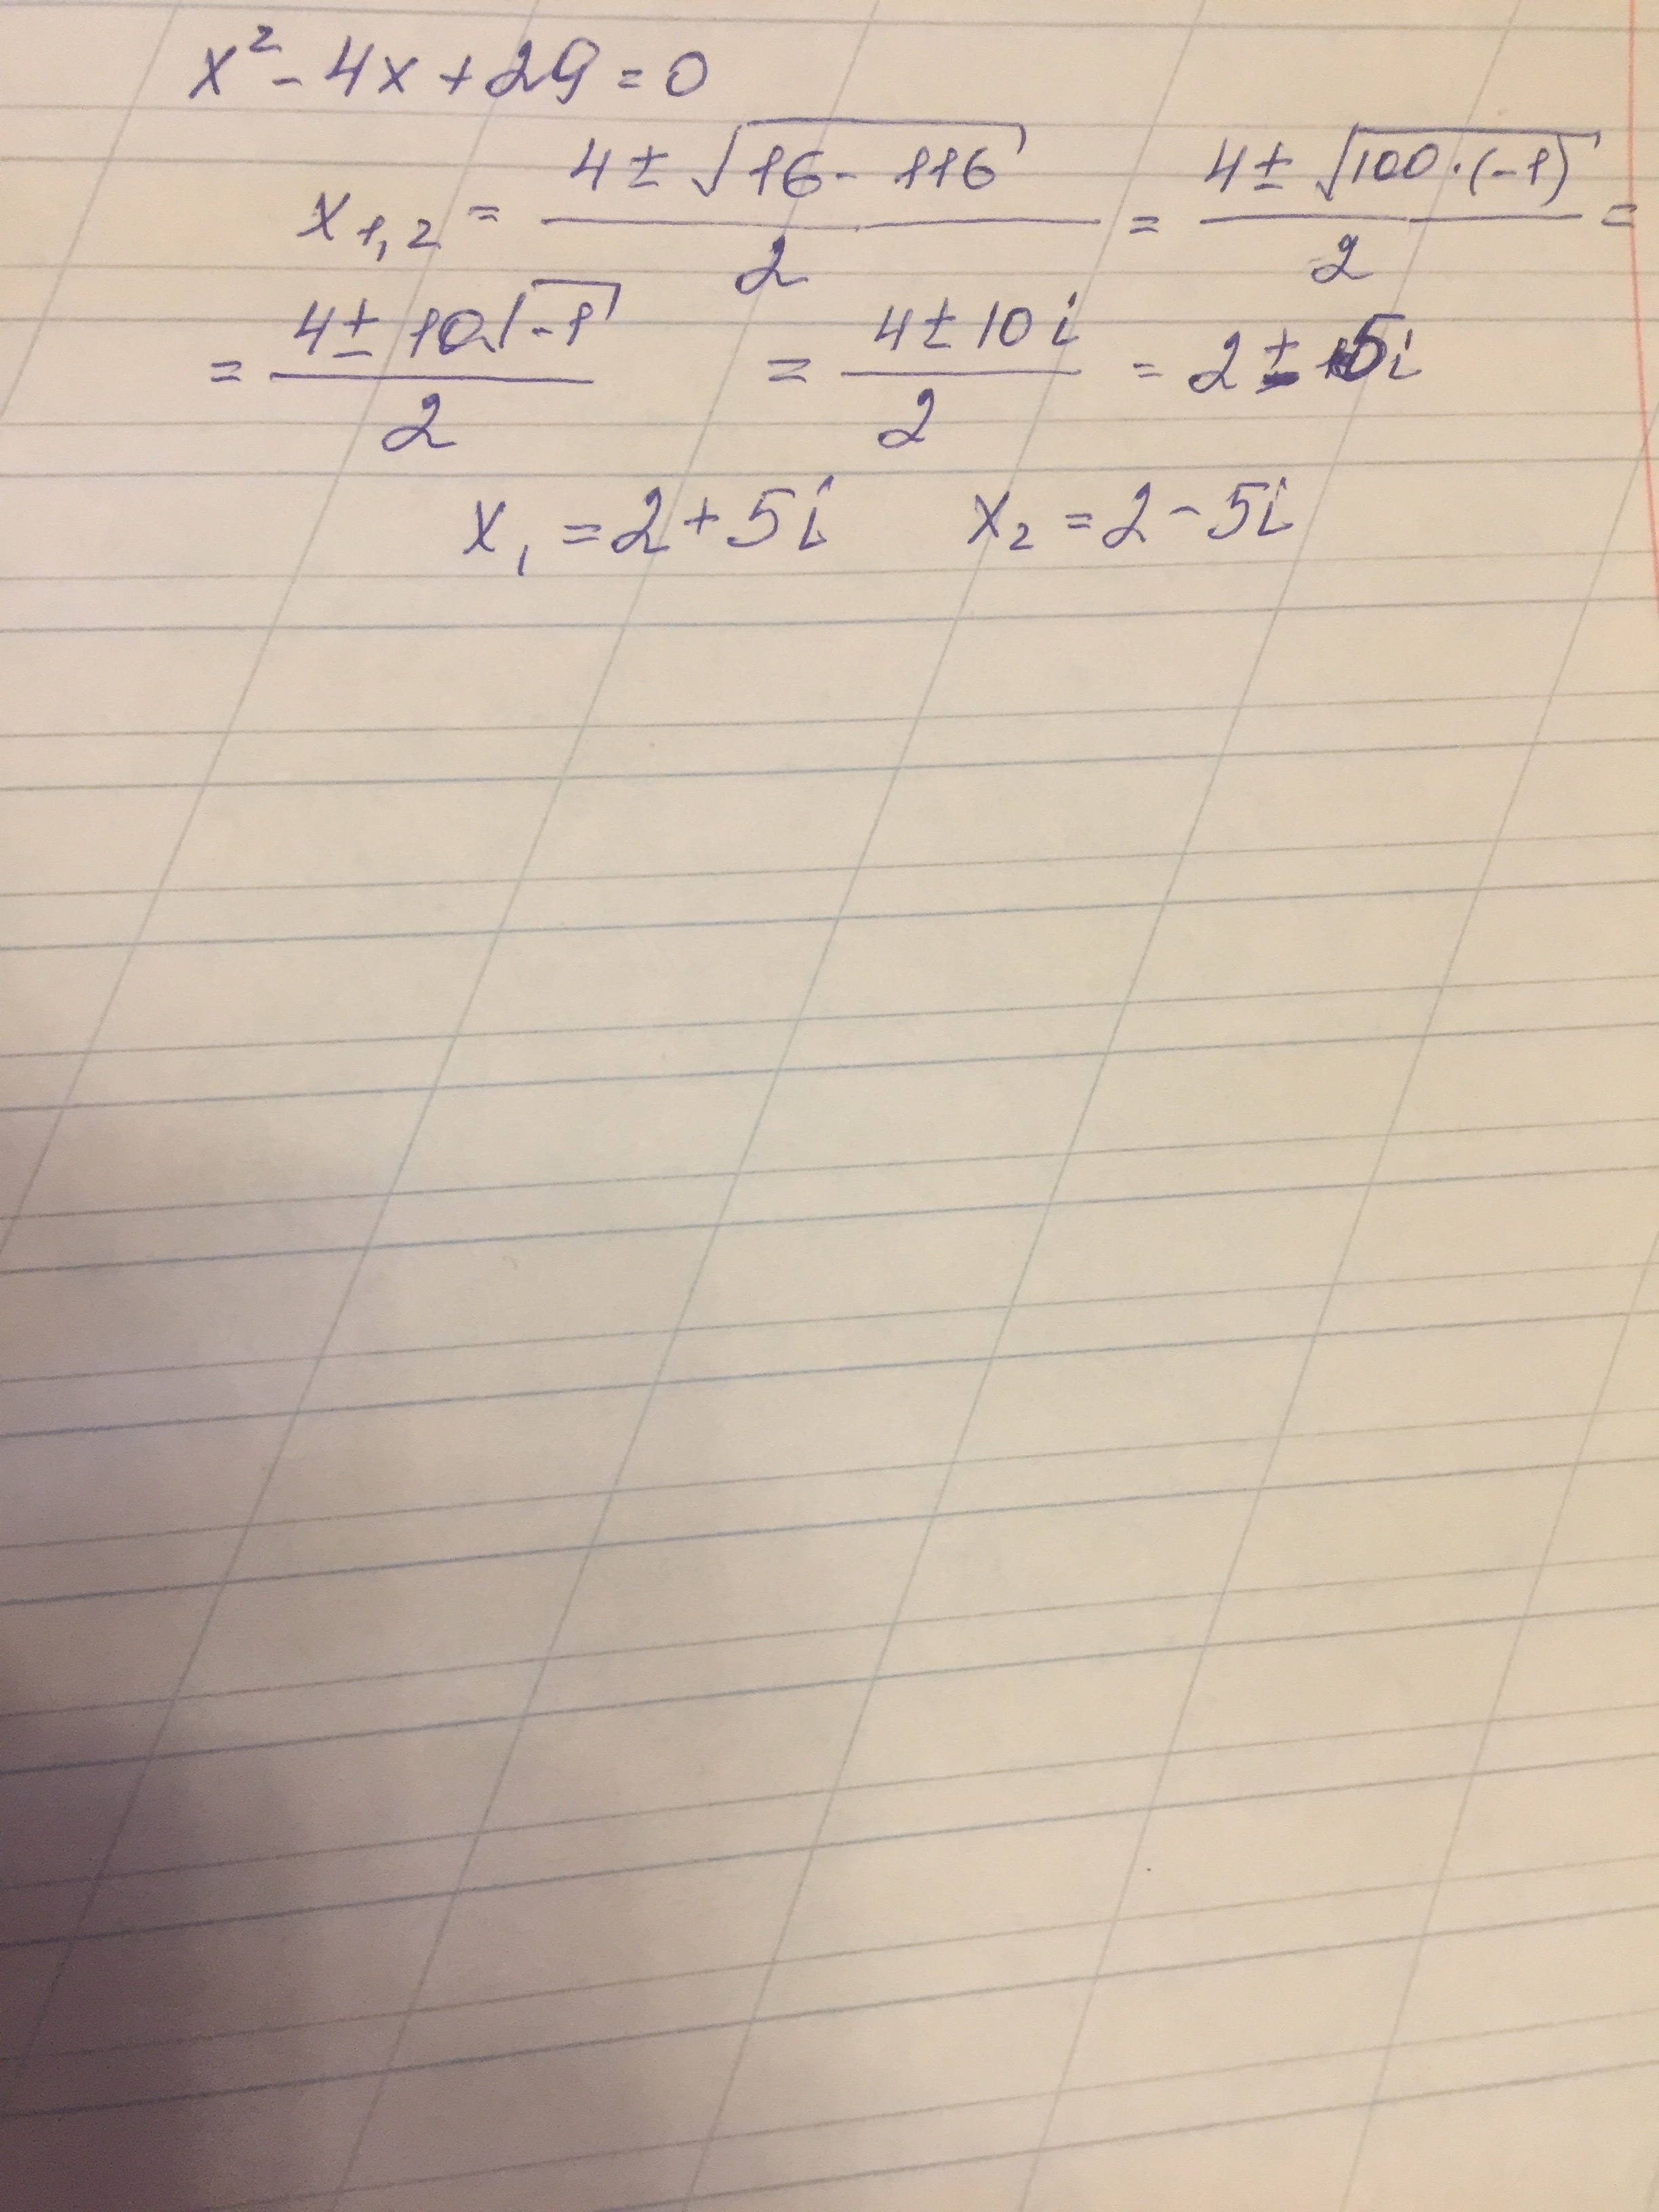 x² - 4x + 29 = 0
x₁,₂ = (4 ± √(16 - 116))/2 = (4 ± √(100 · (-1)))/2 =
= (4 ± 10√-1)/2 = (4 ± 10i)/2 = 2 ± 5i
x₁ = 2 + 5i x₂ = 2 - 5i